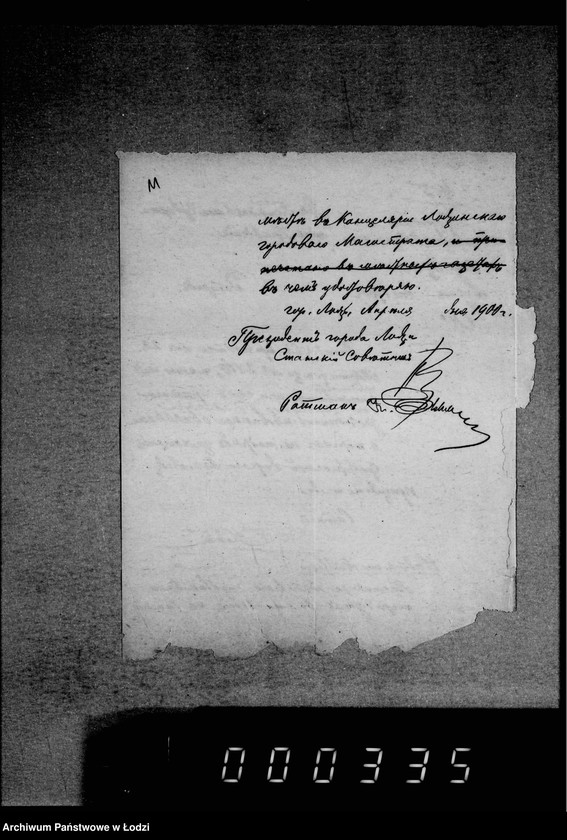 М
въ Канцеляріи Лодзинскаго
городоваго Магистрата, и при
въ
въ чемъ удостовѣряю.
гор. Лодзь, Апрѣля дня 1900 г.
Президентъ города Лодзи
Статскій Совѣтникъ
Ратманъ
000335
Archiwum Państwowe w Łodzi